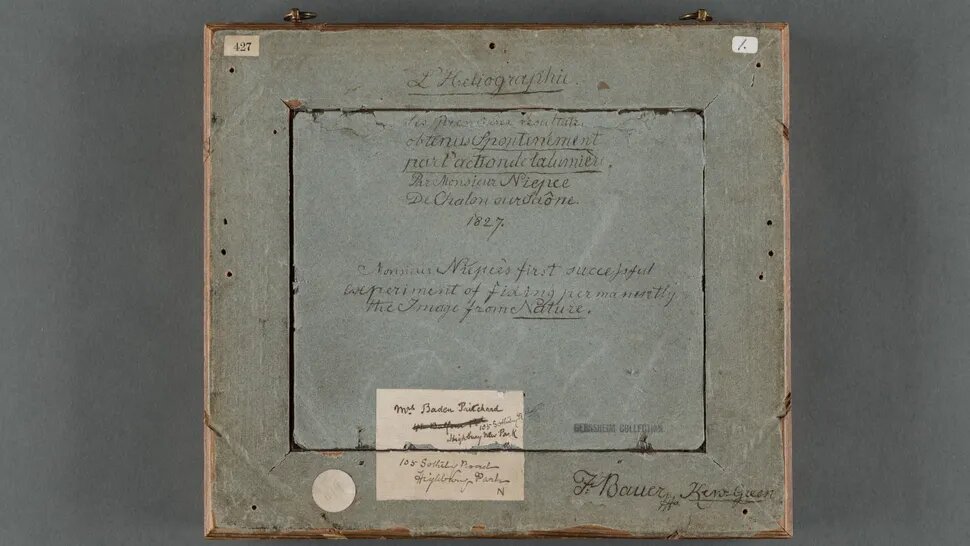 427
1.
L'Heliographie.
Les premiers resultats
obtenus Spontanement
par l'action de la lumiere.
Par Monsieur Niepce
De Chalon sur Saône.
1827.
Monsieur Niepce's first successful
experiment of fixing permanently
the Image from Nature.
Mrs Baden Pritchard
105 Sotheby Rd
Highbury New Park
105 Sotheby Road
Highbury Park
N
GERNSHEIM COLLECTION
F. Bauer Kew Green